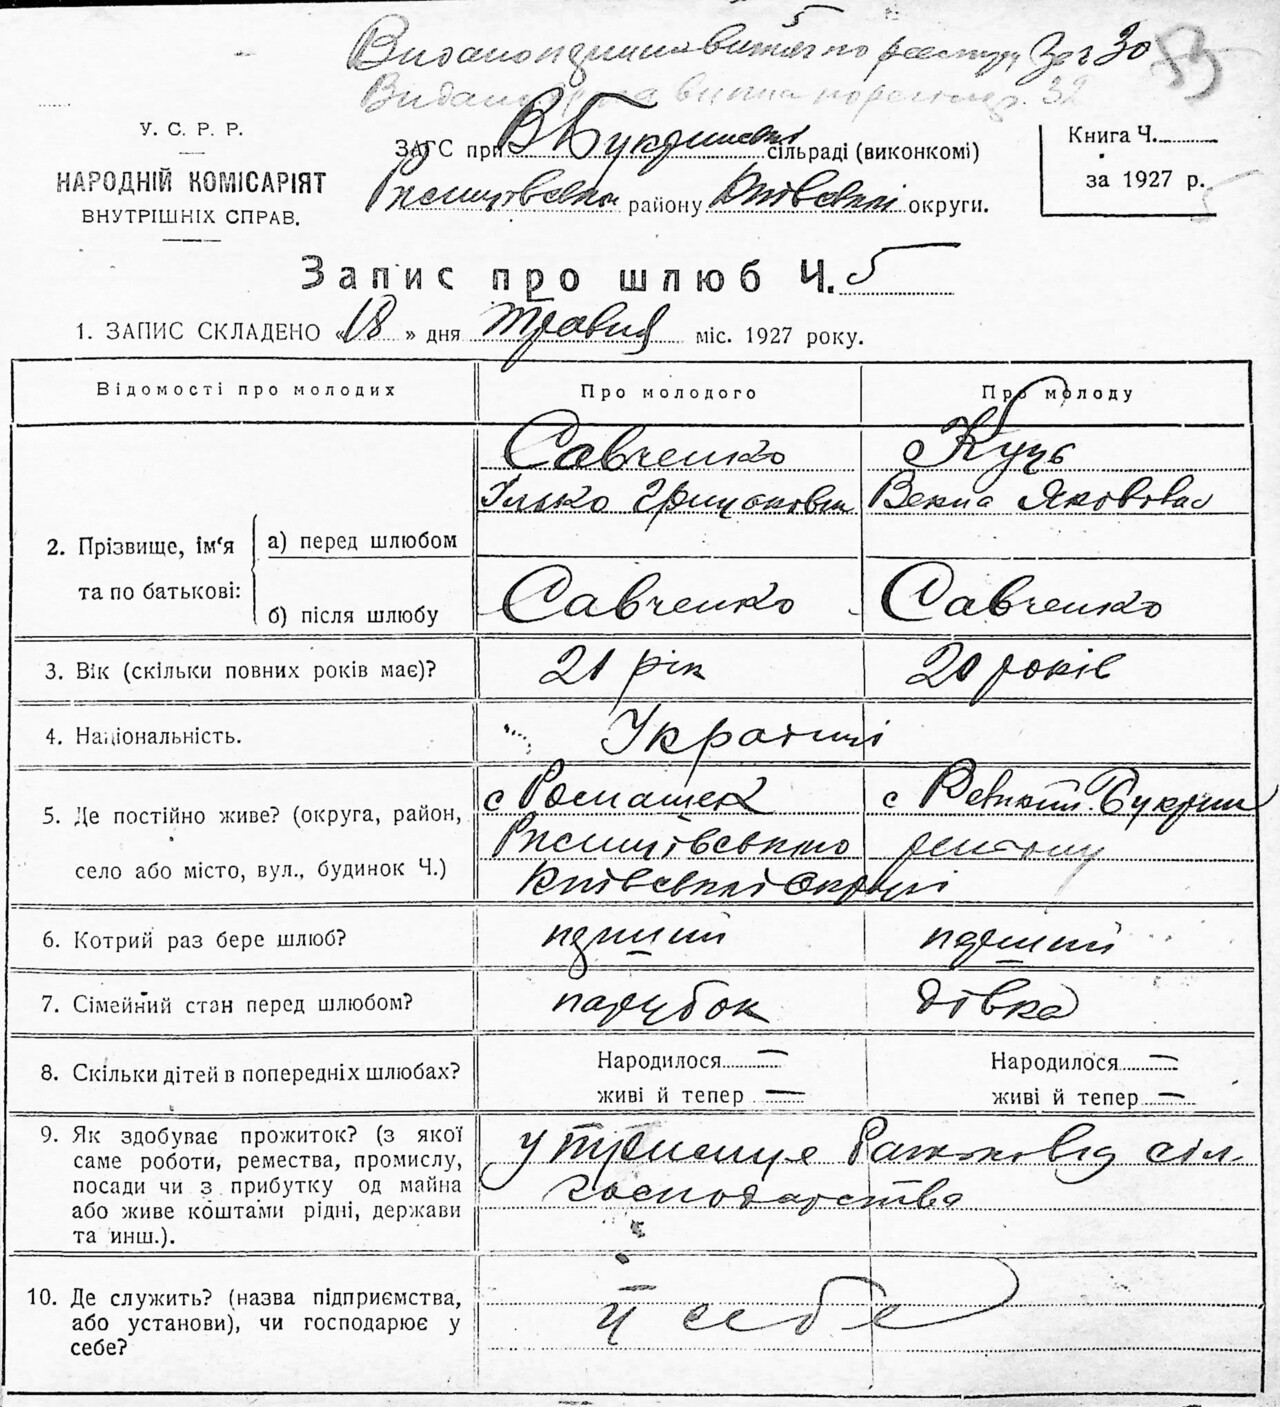 У. С. Р. Р.
НАРОДНІЙ КОМІСАРІЯТ
ВНУТРІШНІХ СПРАВ.
ЗАГС при В Букринській сільраді (виконкомі)
Ржищівського району Київської округи.
Книга Ч.
за 1927 р.
Запис про шлюб Ч. 5
1. ЗАПИС СКЛАДЕНО «18» дня травня міс. 1927 року.
Відомості про молодих
Про молодого
Про молоду
2. Прізвище, ім'я та по батькові:
а) перед шлюбом
Савченко
Ілько
Куць
Векла Яковова
б) після шлюбу
Савченко
Савченко
3. Вік (скільки повних років має)?
21 рік
20 років
4. Національність.
Українці
5. Де постійно живе? (округа, район,
село або місто, вул., будинок Ч.)
с Ромашек
Ржищівського
Київської Округі
с Великий Букрин
6. Котрий раз бере шлюб?
перший
перший
7. Сімейний стан перед шлюбом?
парубок
дівка
8. Скільки дітей в попередніх шлюбах?
Народилося —
живі й тепер —
Народилося —
живі й тепер —
9. Як здобуває прожиток? (з якої
саме роботи, ремества, промислу,
посади чи з прибутку од майна
або живе коштами рідні, держави
та инш.).
від сіл.
господарства
10. Де служить? (назва підприємства,
або установи), чи господарює у
себе?
у себе